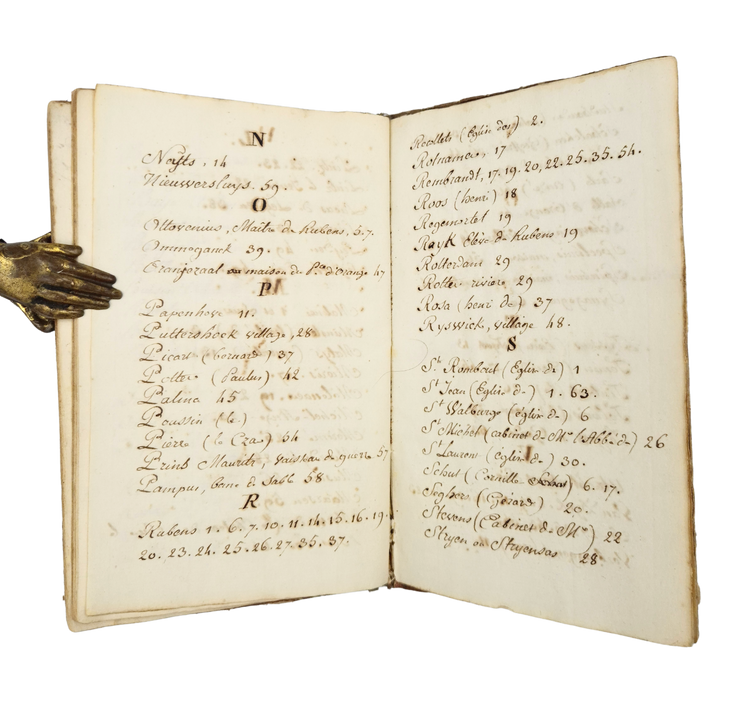 N
Neyts, 14
Nieuwersluys. 59.
O
Ottovenius, Maître de Rubens, 5.7.
Ommeganck 39.
Oranjezaal ou maison de P.ce d'Orange 47
P
Papenhove 11.
Puttershoek village, 28
Picart (bernard) 37
Potter (Paulus) 42
Palina 45
Poussin (le)
Pierre (le Czar) 54
Prins Maurits, vaisseau de guerre 57
Pampus, banc de sable 58
R
Rubens 1. 6. 7. 10. 11. 14. 15. 16. 19.
20. 23. 24. 25. 26. 27. 35. 37.
Recollets (Eglise des) 2.
17
Rembrandt, 17. 19. 20, 22. 25. 35. 54.
Roos (henri) 18
Regemorlet 19
Rayk Elève de Rubens 19
Rotterdam 29
Rotte riviere 29
Rosa (henri de) 37
Ryswick, village 48.
S
St Rombout (Eglise de) 1
St Jean (Eglise de) 1. 63.
St Walburge (eglise de) 6
St Michel (cabinet de Mr l'Abbé de) 26
St Laurent (eglise de) 30.
Schut (Corneille) 6. 17.
Seghers (Gerard) 20.
Stevens (Cabinet de Mr) 22
Stryen ou Stryensas 28